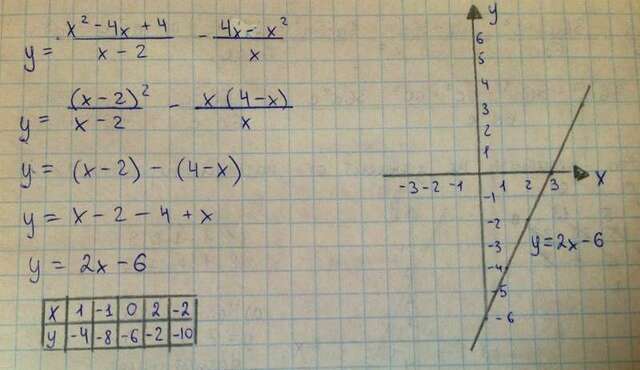 y = (x² - 4x + 4)/(x - 2) - (4x - x²)/x
y = (x - 2)²/(x - 2) - x(4 - x)/x
y = (x - 2) - (4 - x)
y = x - 2 - 4 + x
y = 2x - 6
x 1 -1 0 2 -2
y -4 -8 -6 -2 -10
y
6
5
4
3
2
1
-3 -2 -1 1 2 3 x
-1
-2
-3
y = 2x - 6
-4
-5
-6